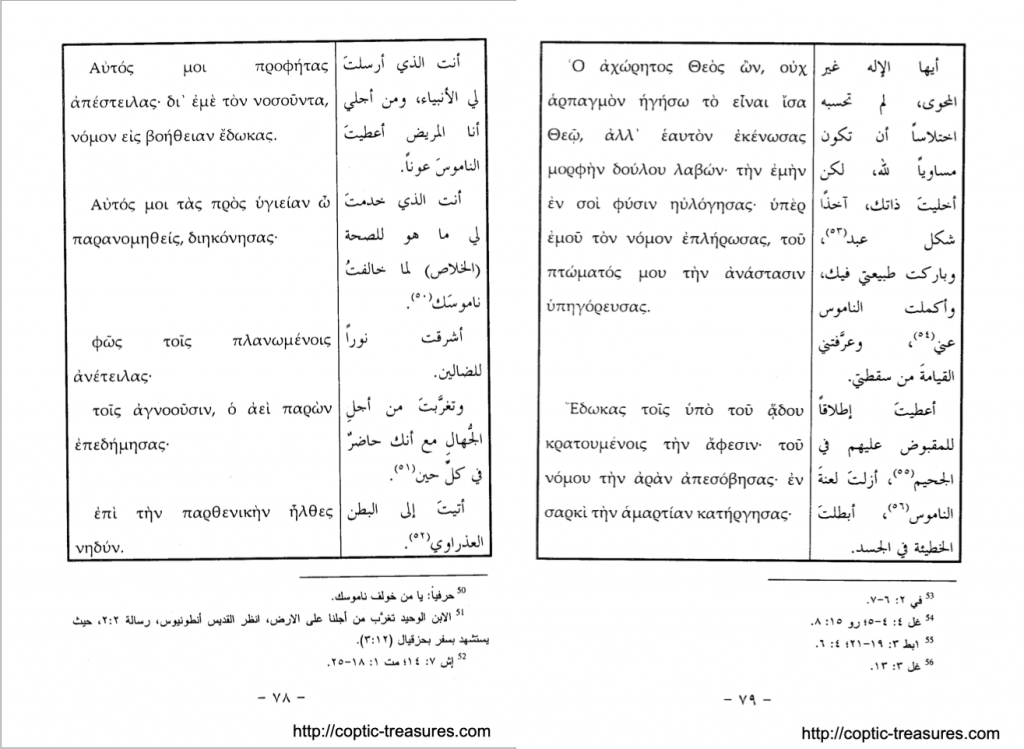 Αὐτός μοι προφήτας
ἀπέστειλας· δι᾽ ἐμὲ τὸν νοσοῦντα,
νόμον εἰς βοήθειαν ἔδωκας.
أنت الذي أرسلتَ
لي الأنبياء، ومن أجلي
أنا المريض أعطيتَ
الناموسَ عوناً.
Αὐτός μοι τὰς πρὸς ὑγιείαν ὦ
παρανομηθείς, διηκόνησας·
أنت الذي خدمتَ
لي ما هو للصحة
(الخلاص) لما خالفتُ
ناموسَك(٥٠).
φῶς τοῖς πλανωμένοις
ἀνέτειλας·
أشرقت نوراً
للضالين.
τοῖς ἀγνοοῦσιν, ὁ ἀεὶ παρὼν
ἐπεδήμησας·
وتغرَّبتَ من أجلِ
الجُهالِ مع أنك حاضرٌ
في كلِّ حين(٥١).
ἐπὶ τὴν παρθενικὴν ἦλθες
νηδύν.
أتيتَ إلى البطن
العذراوي(٥٢).
50 حرفياً: يا من خولف ناموسك.
51 الابن الوحيد تغرَّب من أجلنا على الارض، انظر القديس أنطونيوس، رسالة ٢:٢، حيث
يستشهد بسفر بحزقيال (٣:١٢).
52 إش ٧: ١٤؛ مت ١: ١٨-٢٥.
- ٧٨ -
http://coptic-treasures.com
Ὁ ἀχώρητος Θεὸς ὢν, οὐχ
ἁρπαγμὸν ἡγήσω τὸ εἶναι ἴσα
Θεῷ, ἀλλ᾽ ἑαυτὸν ἐκένωσας
μορφὴν δούλου λαβών· τὴν ἐμὴν
ἐν σοὶ φύσιν ηὐλόγησας· ὑπὲρ
ἐμοῦ τὸν νόμον ἐπλήρωσας, τοῦ
πτώματός μου τὴν ἀνάστασιν
ὑπηγόρευσας.
أيها الإله غير
المحوى، لم تحسبه
اختلاساً أن تكون
مساوياً لله، لكن
أخليتَ ذاتك، آخذًا
شكل عبد(٥٣)،
وباركت طبيعتي فيك،
وأكملت الناموس
عني(٥٤)، وعرَّفتني
القيامةَ من سقطتي.
Ἔδωκας τοῖς ὑπὸ τοῦ ᾅδου
κρατουμένοις τὴν ἄφεσιν· τοῦ
νόμου τὴν ἀρὰν ἀπεσόβησας· ἐν
σαρκὶ τὴν ἁμαρτίαν κατήργησας·
أعطيتَ إطلاقاً
للمقبوض عليهم في
الجحيم(٥٥)، أزلتَ لعنةَ
الناموس(٥٦)، أبطلتَ
الخطيئة في الجسد.
53 في ٢: ٦-٧.
54 غل ٤: ٤-٥؛ رو ١٥: ٨.
55 ١بط ٣: ١٩-٢١؛ ٤: ٦.
56 غل ٣: ١٣.
- ٧٩ -
http://coptic-treasures.com